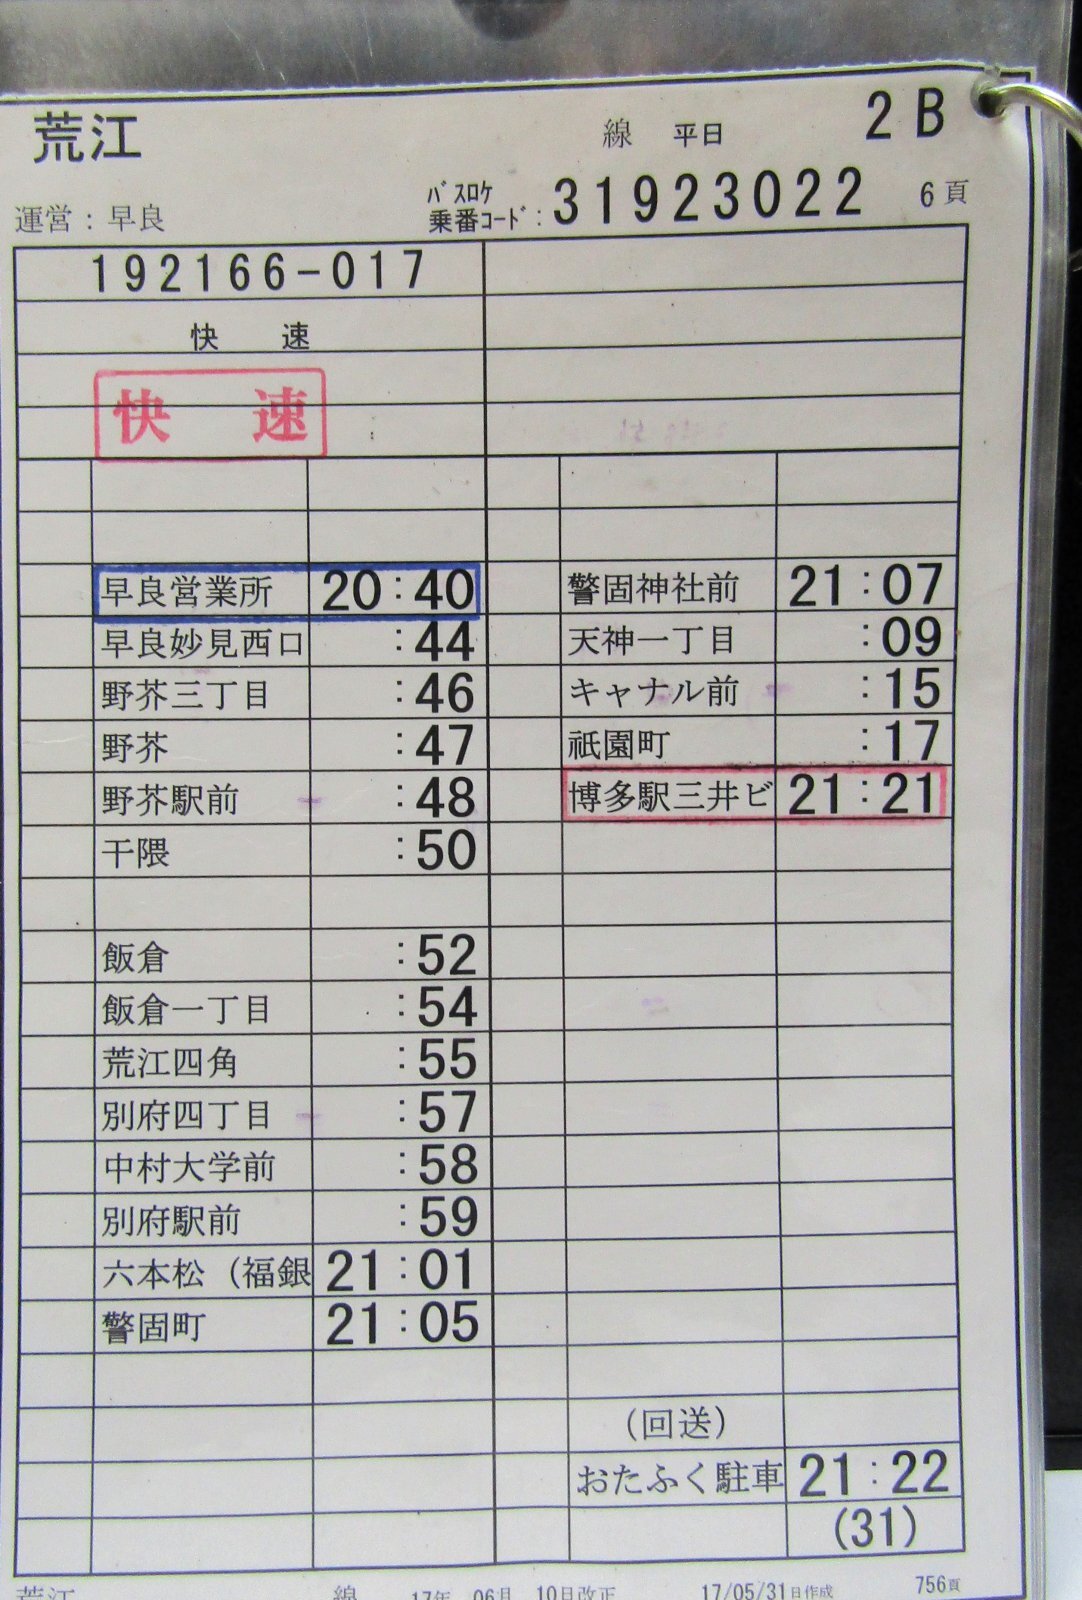 荒江
線 平日 2B
運営：早良 バスロケ乗番コード：31923022 6頁
192166-017
快 速
快 速
早良営業所 20:40
早良妙見西口 :44
野芥三丁目 :46
野芥 :47
野芥駅前 :48
干隈 :50
飯倉 :52
飯倉一丁目 :54
荒江四角 :55
別府四丁目 :57
中村大学前 :58
別府駅前 :59
六本松（福銀 21:01
警固町 21:05
警固神社前 21:07
天神一丁目 :09
キャナル前 :15
祇園町 :17
博多駅三井ビ 21:21
(回送)
おたふく駐車 21:22
(31)
荒江 線 17年 06月 10日改正 17/05/31日作成 756頁